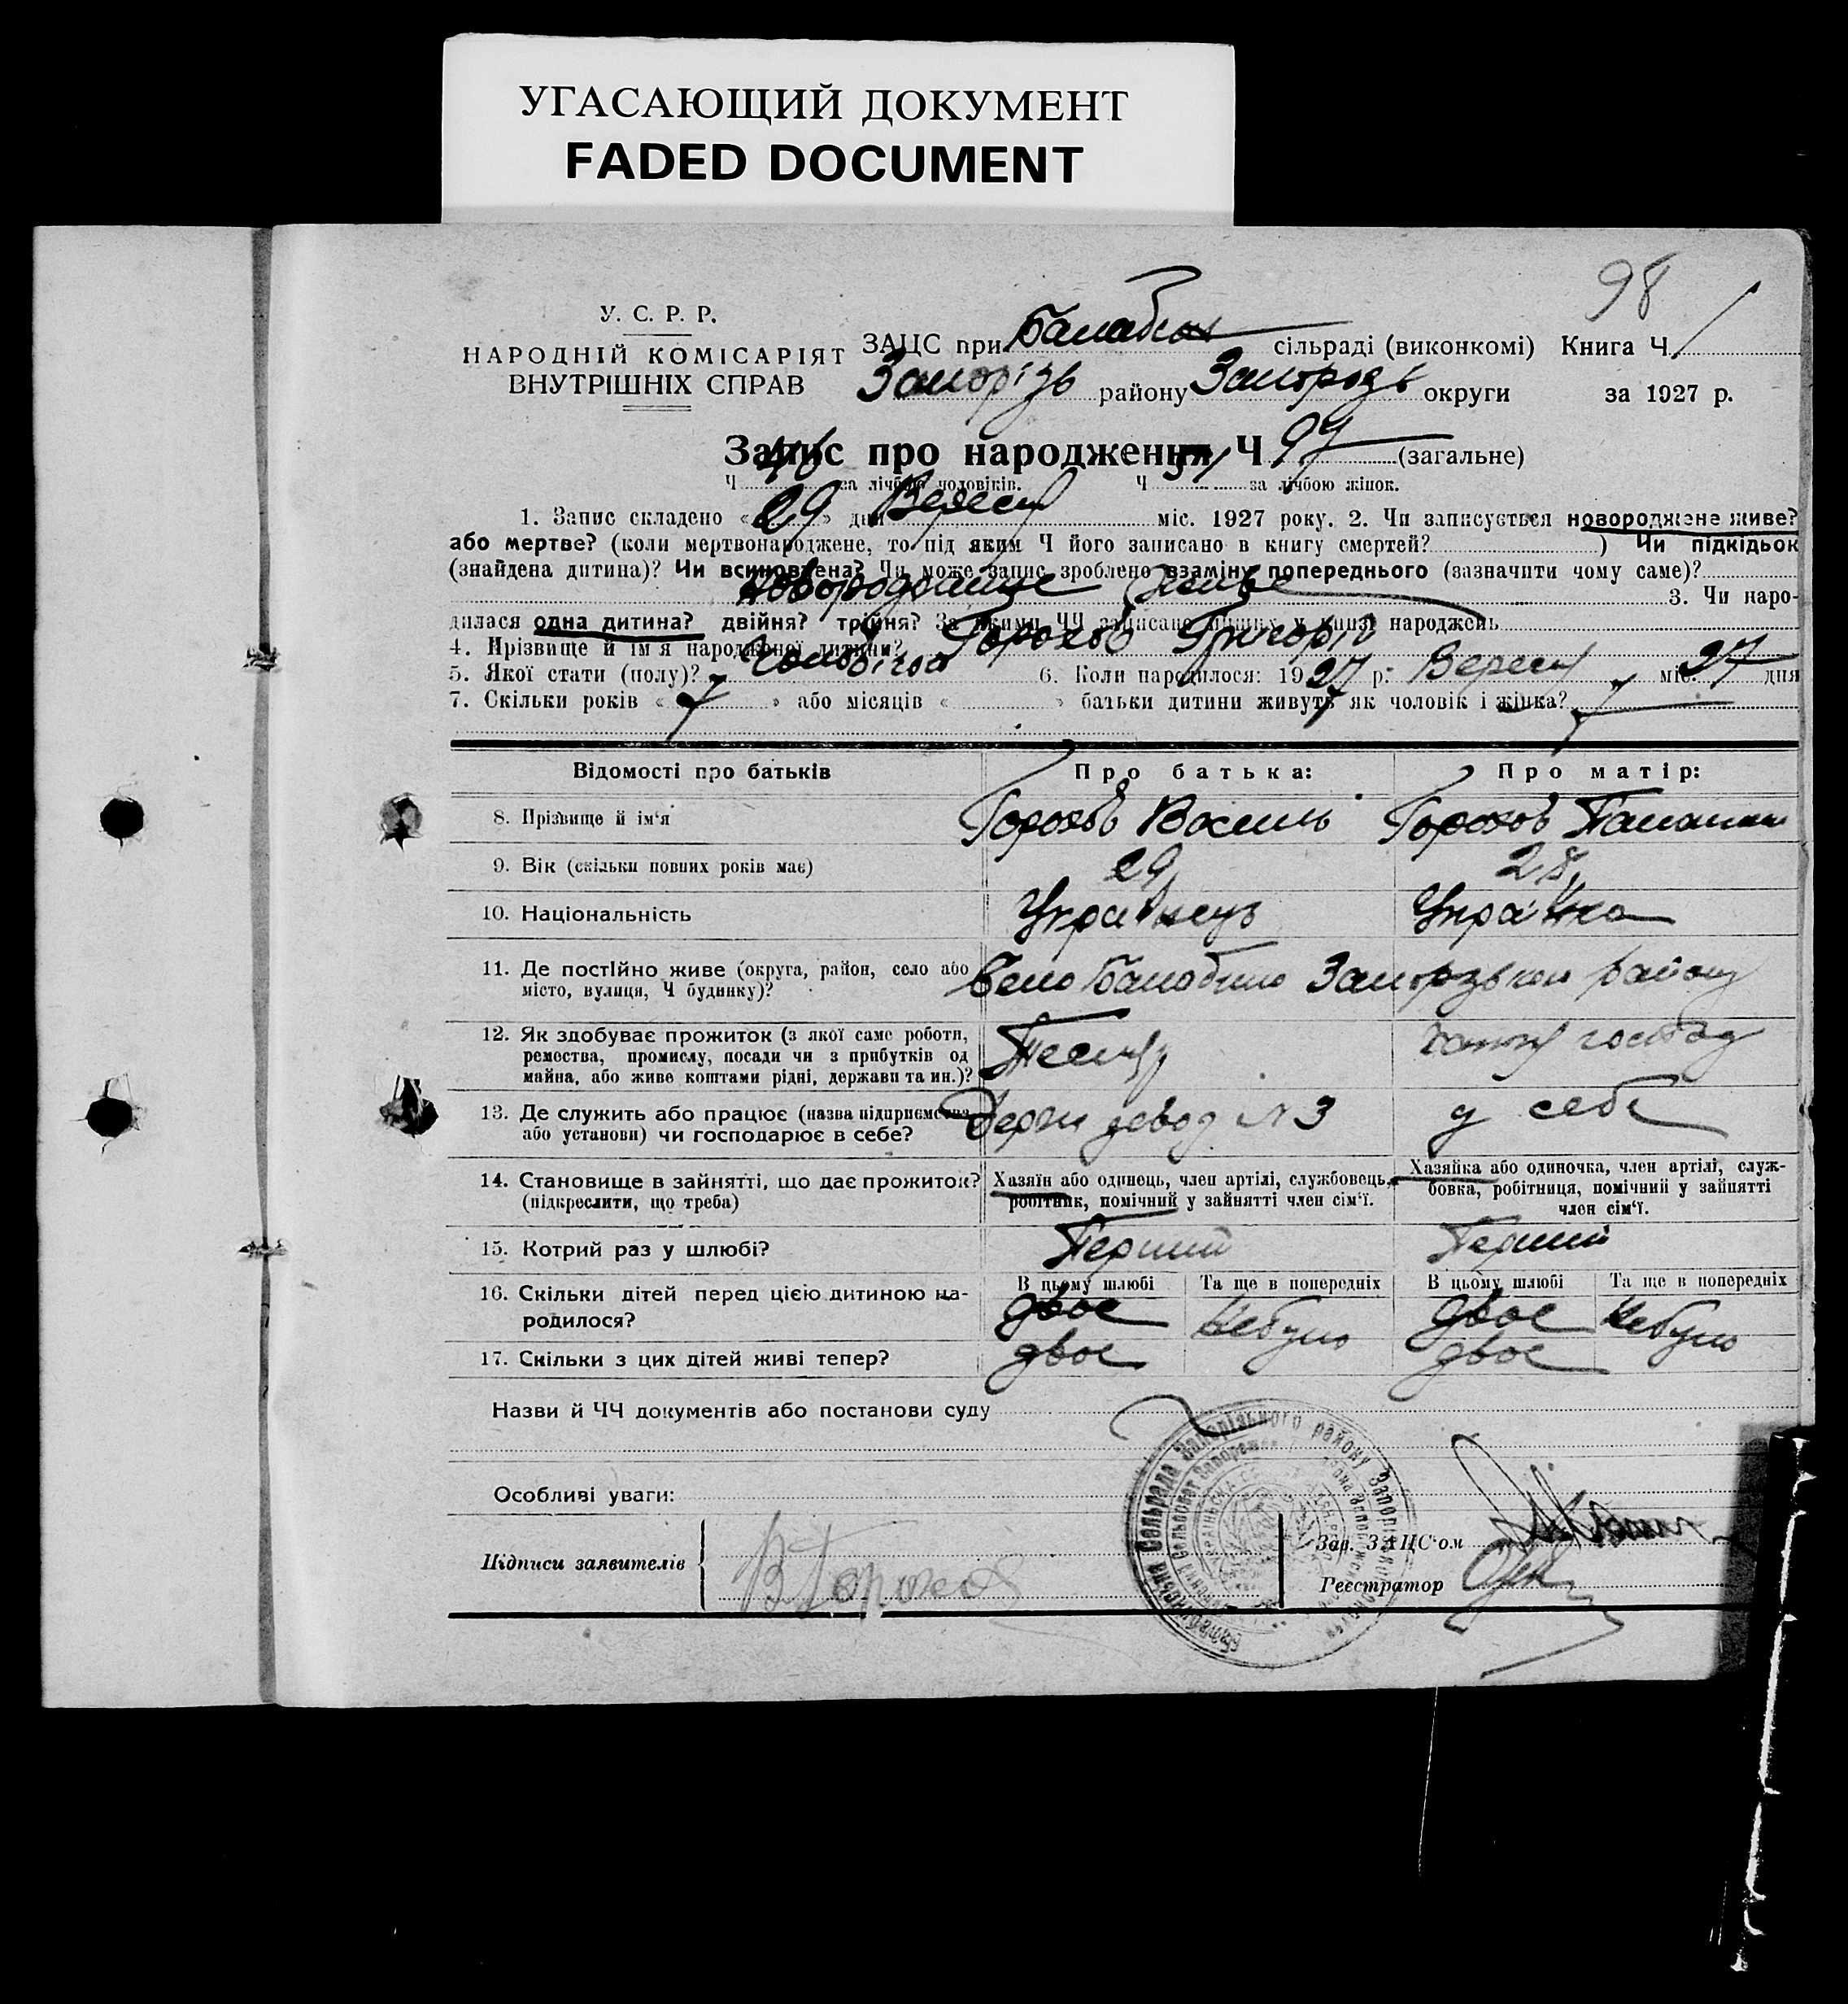 УГАСАЮЩИЙ ДОКУМЕНТ
FADED DOCUMENT
98
У. С. Р. Р.
НАРОДНІЙ КОМІСАРІЯТ
ВНУТРІШНІХ СПРАВ
ЗАЦС при сільраді (виконкомі) Книга Ч. 1
Запорізь району округи за 1927 р.
Запис про народження Ч (загальне)
Ч 46 за лічбою чоловіків. Ч за лічбою жінок.
1. Запис складено « 29 » дня Вересн міс. 1927 року. 2. Чи записується новороджене живе?
або мертве? (коли мертвонароджене, то під яким Ч його записано в книгу смертей? ) Чи підкідьок
(знайдена дитина)? Чи всиновлена? Чи може запис зроблено взаміну попереднього (зазначити чому саме)?
3. Чи наро-
дилася одна дитина? двійня? трійня? За якими ЧЧ записано инших у книзі народжень
4. Прізвище й ім'я народженої дитини? Горохов Григорій
5. Якої стати (полу)? 6. Коли народилося: 1927 р. Вересн міс. 27 дня
7. Скільки років « 7 » або місяців « » батьки дитини живуть як чоловік і жінка?
Відомості про батьків Про батька: Про матір:
8. Прізвище й ім'я Горохов Василь Горохов
9. Вік (скільки повних років має) 29 28
10. Національність Українець Українка
11. Де постійно живе (округа, район, село або Село району
місто, вулиця, Ч будинку)?
12. Як здобуває прожиток (з якої саме роботи,
ремества, промислу, посади чи з прибутків од
майна, або живе коштами рідні, держави та ин.)?
13. Де служить або працює (назва підприємства № 3 у себе
або установи) чи господарює в себе?
14. Становище в зайнятті, що дає прожиток?
(підкреслити, що треба)
Хазяїн або одинець, член артілі, службовець,
робітник, помічний у зайнятті член сім'ї.
Хазяйка або одиночка, член артілі, служ-
бовка, робітниця, помічний у зайнятті
член сім'ї.
15. Котрий раз у шлюбі? Перший Перший
В цьому шлюбі Та ще в попередніх В цьому шлюбі Та ще в попередніх
16. Скільки дітей перед цією дитиною на- двое небуло двое небуло
родилося?
17. Скільки з цих дітей живі тепер? двое двое
Назви й ЧЧ документів або постанови суду
Особливі уваги:
Підписи заявителів В Горохов
Зав. ЗАЦС'ом
Реєстратор